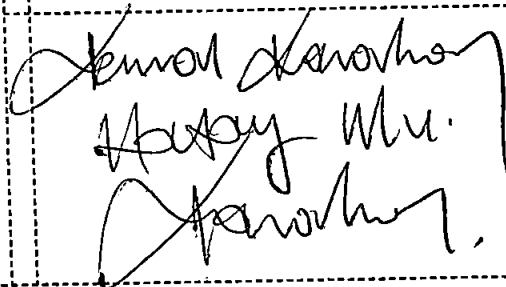 Kemal Karahan
Hatay Mv.
Karahan